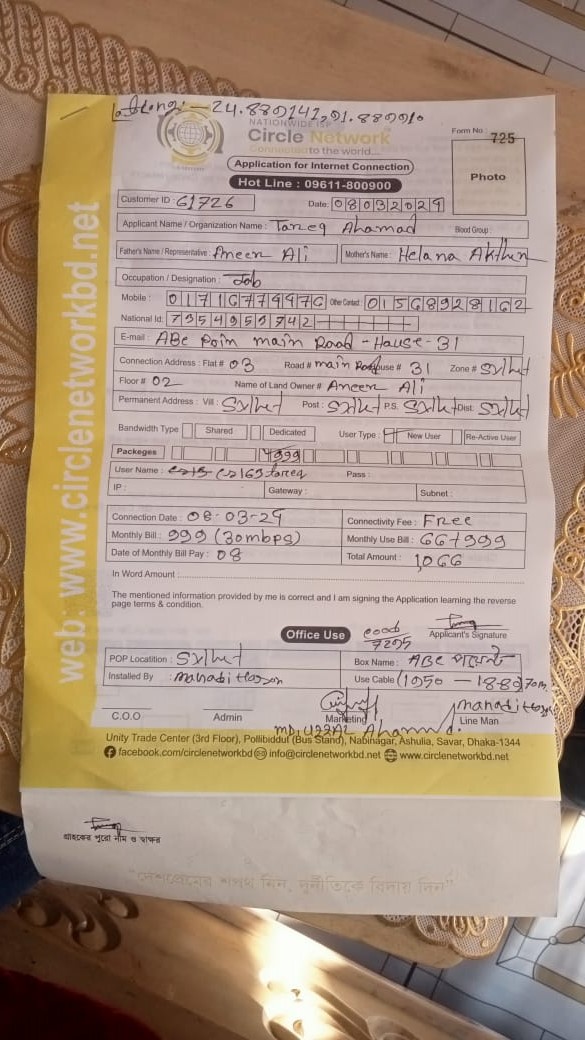 24.889141,91.88
NATIONWIDE ISP
Circle Network
Connected to the world...
Form No : 725
Application for Internet Connection
Hot Line : 09611-800900
Photo
Customer ID : 61726 Date: 08032024
Applicant Name / Organization Name : Tareq Ahamad Blood Group :
Father's Name / Representative : Ameer Ali Mother's Name : Helana Akther
Occupation / Designation : Job
Mobile : Other Contact : 01568928162
National Id:
E-mail : ABC Poin main Road - House - 31
Connection Address : Flat # 03 Road # main Road House # 31 Zone # Sylhet
Floor # 02 Name of Land Owner # Ameer Ali
Permanent Address : Vill : Sylhet Post : Sylhet P.S Sylhet Dist: Sylhet
Bandwidth Type Shared Dedicated User Type : New User Re-Active User
Packeges 999
User Name : tareq Pass :
IP : Gateway : Subnet :
Connection Date : 08-03-24 Connectivity Fee : Free
Monthly Bill : 999 (30mbps) Monthly Use Bill : 66+999
Date of Monthly Bill Pay : 08 Total Amount : 1,066
In Word Amount :
The mentioned information provided by me is correct and I am signing the Application learning the reverse
page terms & condition.
Office Use
Applicant's Signature
POP Locatition : Sylhet Box Name : ABC পয়েন্ট
Installed By : Use Cable (1950 - 1880)70m
C.O.O Admin Marketing Line Man
Unity Trade Center (3rd Floor), Pollibiddut (Bus Stand), Nabinagar, Ashulia, Savar, Dhaka-1344
facebook.com/circlenetworkbd info@circlenetworkbd.net www.circlenetworkbd.net
web : www.circlenetworkbd.net
গ্রাহকের পুরো নাম ও স্বাক্ষর
"দেশপ্রেমের শপথ নিন, দুর্নীতিকে বিদায় দিন"